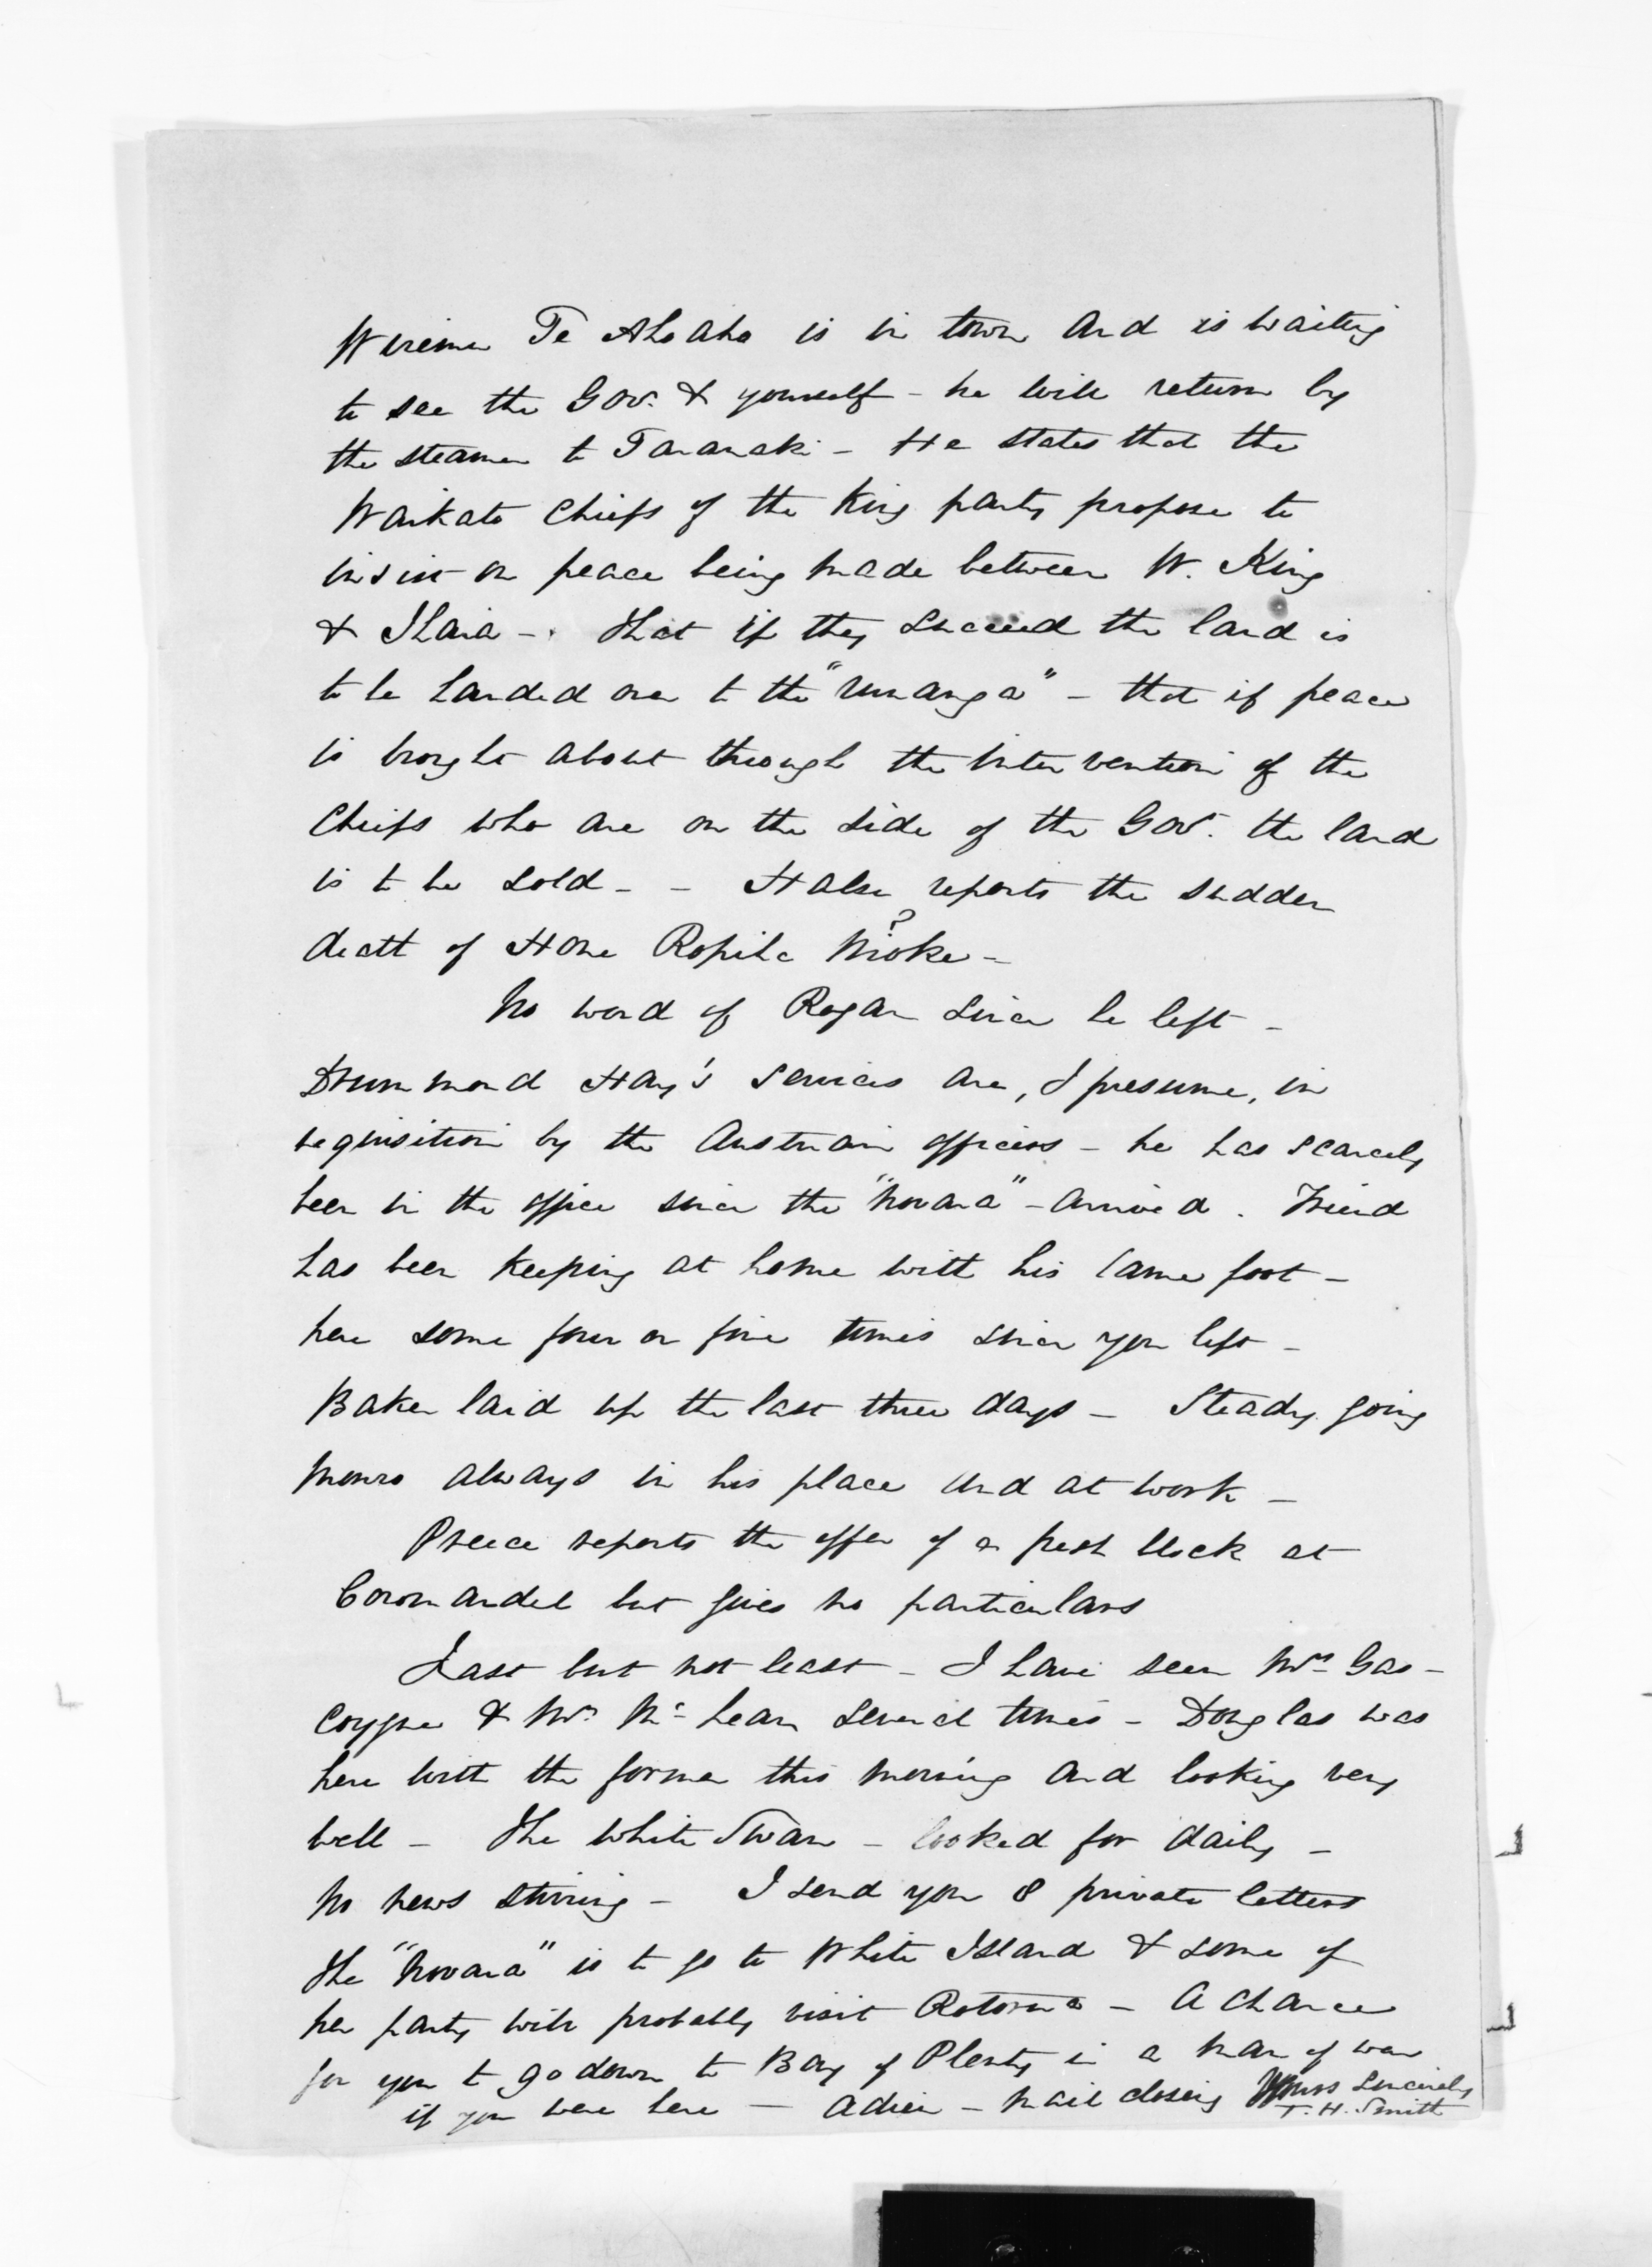 Wiremu Te Ahoaho is in town and is waiting
to see the Gov. & yourself - he will return by
the steamer to Taranaki - He states that the
Waikato Chiefs of the King party propose to
insist on peace being made between W. King
& Ihaia - That if they succeed the land is
to be handed over to the "runanga" - that if peace
is brought about through the intervention of the
Chiefs who are on the side of the Gov. the land
is to be sold - - H also reports the sudden
death of Hone Ropiha ?
No word of Rogan since he left -
Drummond Hay's services are, I presume, in
requisition by the Austrian officers - he has scarcely
been in the office since the "Novara" - arrived. Friend
has been keeping at home with his lame foot -
here some four or five times since you left -
Baker laid up the last three days - Steady going
Monro always in his place and at work -
Preece reports the offer of a fresh block at
Coromandel but gives no particulars
Last but not least - I have seen Mrs Gas-
coygne & Mrs Mc Lean several times - Douglas was
here with the former this morning and looking very
well - The White Swan - looked for daily -
No news stirring - I send you 8 private letters
The "Novara" is to go to White Island & some of
her party will probably visit Rotorua - A chance
for you to go down to Bay of Plenty in a man of war
if you were here - Adieu - mail closing Yours Sincerely
T. H. Smith